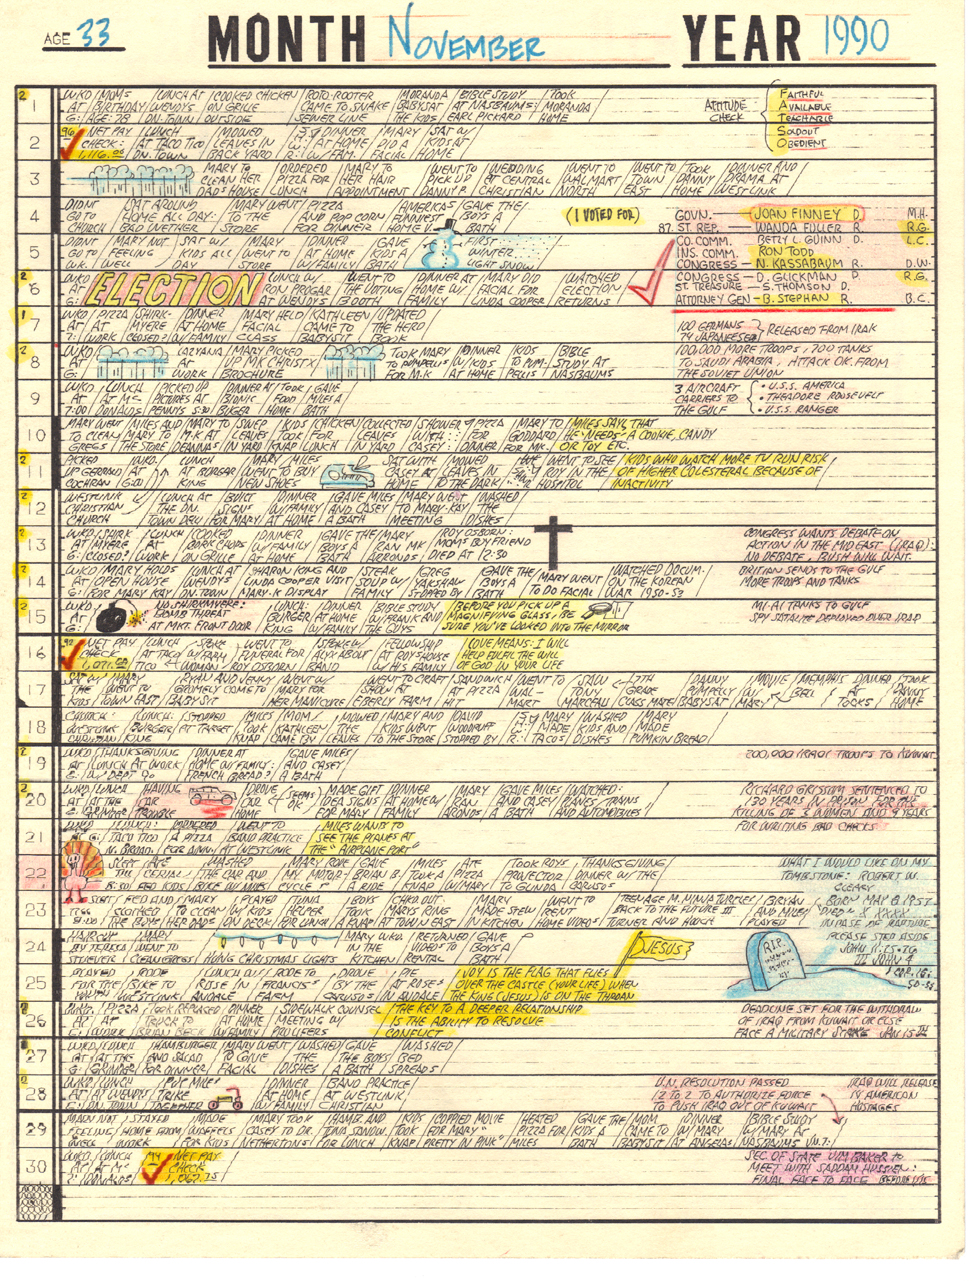 AGE 33 MONTH NOVEMBER YEAR 1990
1
WKO/ MOMS / LUNCH AT / COOKED CHICKEN / ROTO-ROOTER / MORANDA / BIBLE STUDY / TOOK
AT / BIRTHDAY / WENDYS / ON GRILLE / CAME TO SNAKE / BABYSAT / AT NASBAUMS: / MORANDA
G: / AGE: 78 / DN. TOWN / OUTSIDE / SEWER LINE / THE KIDS / EARL PICKARD / HOME
ATTITUDE CHECK
FAITHFUL
AVAILABLE
TEACHABLE
SOLDOUT
OBEDIENT
2
NET PAY / LUNCH / MOWED / DINNER / MARY / SAT W/
CHECK: / AT TACO TICO / LEAVES IN / AT HOME / DID A / KIDS AT
1,116.00 / DN. TOWN / BACK YARD / W/ FAM. / FACIAL / HOME
3
MARY TO / ORDERED / MARY TO / WENT TO / WEDDING / WENT TO / WENT TO / TOOK / DINNER AND
CLEAN HER / PIZZA FOR / HER HAIR / PICK UP / AT CENTRAL / WAL.MART / TOWN / DANNY / DRAMA AT
DAD'S HOUSE / LUNCH / APPOINTMENT / DANNY P. / CHRISTIAN / NORTH / EAST / HOME / WESTLINK
4
DIDNT / SAT AROUND / MARY WENT / PIZZA / AMERICAS / GAVE THE
GO TO / HOME ALL DAY: / TO THE / AND POP CORN / FUNNIEST / BOYS A
CHURCH / BAD WETHER / STORE / FOR DINNER / HOME V. / BATH
(I VOTED FOR)
GOVN. — JOAN FINNEY D. M.H.
87. ST. REP. — WANDA FULLER R. R.G.
CO. COMM. BETTY L. QUINN D. L.C.
INS. COMM. RON TODD
CONGRESS — N. KASSABAUM R. D.W.
CONGRESS — D. GLICKMAN D. R.G.
ST TREASURE — S. THOMSON D.
ATTORNEY GEN — B. STEPHAN R. B.C.
5
DIDNT / MARY NOT / SAT W/ / MARY / DINNER / GAVE / FIRST
GO TO / FEELING / KIDS ALL / WENT TO / AT HOME / KIDS A / WINTER
WK. / WELL / DAY / STORE / W/FAMILY / BATH / LIGHT SNOW
6
WKO / ELECTION / LUNCH W/ / WENT TO / DINNER / MARY DID / WATCHED
AT / RON PROGAR / THE VOTING / HOME W/ / FACIAL FOR / ELECTION
G: / AT WENDYS / BOOTH / FAMILY / LINDA COOPER / RETURNS
7
WKO / PIZZA / SHIRK- / DINNER / MARY HELD / KATHLEEN / UPDATED
AT / AT / MYERE / AT HOME / FACIAL / CAME TO / THE HERO
7: / WORK / CLOSED? / W/FAMILY / CLASS / BABYSIT / BOOK
100 GERMANS
74 JAPANEESE } RELEASED FROM IRAK
8
WKO / LAZYANIA / MARY PICKED / TOOK MARY / DINNER / KIDS / BIBLE
AT / AT / UP MK CHRISTX / TO PUMPELLYS / W/KIDS / TO PUM- / STUDY AT
G: / WORK / BROCHURE / FOR M.K / AT HOME / PELLYS / NASBAUMS
100,000 MORE TROOPS, 700 TANKS
TO SAUDI ARABIA, ATTACK OK. FROM
THE SOVIET UNION
9
WKO / LUNCH / PICKED UP / DINNER AT / TOOK / GAVE
AT / AT MC / PICTURES AT / BIONIC / FOOD / MILES A
7:00 / DONALDS / PENNYS 5:30 / BUGER / HOME / BATH
3 AIRCRAFT
CARRIERS TO
THE GULF
• U.S.S. AMERICA
• THEADORE ROOSEVELT
• U.S.S. RANGER
10
MARY WENT / MILES AND / MARY TO / SWEP / KIDS / CHICKEN / COLLECTED / SHOWER / PIZZA / MARY TO / MILES SAYS, THAT
TO CLEAN / MARY TO / M.K AT / LEAVES / TOOK / FOR / LEAVES / WITH / FOR / GODDARD / HE "NEEDS" A COOKIE, CANDY
GREGS / THE STORE / DEANNA'S / IN YARD / KNAP / LUNCH / IN YARD / CASEY / DINNER / FOR MK. / OR TOY ETC.
11
PICKED / WKO. / LUNCH / MARY / MILES / SAT WITH / MOWED / WENT TO SEE / KIDS WHO WATCH MORE TV RUN RISK
UP GERRALD / AT / BURGAR / WENT TO BUY / CASEY AT / LEAVES IN / IN THE / OF HIGHER COLESTERAL BECAUSE OF
COCHRAN / G:00 / KING / NEW SHOES / HOME / TO THE DARK / HOSPITOL / INACTIVITY
12
WESTLINK / LUNCH AT / BUILT / DINNER / GAVE MILES / MARY WENT / WASHED
CHRISTIAN / THE DN. / SIGNS / W/FAMILY / AND CASEY / TO MARY-KAY / THE
CHURCH / TOWN DELI / FOR MARY / AT HOME / A BATH / MEETING / DISHES
13
WKO / SHIRK / LUNCH / COOKED / DINNER / GAVE THE / MARY / ROY OSBORN:
AT / MYERE / AT / PORK CHOPS / W/FAMILY / BOYS A / RAN MK / MOMS BOY FRIEND
G: / CLOSED? / WORK / ON GRILLE / AT HOME / BATH / ARRONDS / DIED AT 12:30
CONGRESS WANTS DEBATE ON
ACTION IN THE MID EAST (IRAQ):
NO DEBATE, BUSH WILL WAIT.
14
WKO / MARY HOLDS / LUNCH AT / SHARON KING AND / STEAK / GREG / GAVE THE / MARY WENT / WATCHED DOCUM.
AT / OPEN HOUSE / WENDYS / LINDA COOPER VISIT / SOUP W/ / YAKSHAW / BOYS A / TO DO FACIAL / ON THE KOREAN
G: / FOR MARY KAY / DN. TOWN / MARY-K DISPLAY / FAMILY / STOPPED BY / BATH / WAR 1950-53
BRITIAN SENDS TO THE GULF
MORE TROOPS AND TANKS
15
WKO / NO-SHIRKMYERE: / LUNCH: / DINNER / BIBLE STUDY / BEFORE YOU PICK UP A
AT / BOMB THREAT / BURGER / AT HOME / W/FRANK AND / MAGNIFYING GLASS, BE
G: / AT MKT. FRONT DOOR / KING / W/FAMILY / THE GUYS / SURE YOU'VE LOOKED INTO THE MIRROR
M1-A1 TANKS TO GULF
SPY SATALITE DEPLOYED OVER IRAQ
16
NET PAY / LUNCH / SPOKE / WENT TO / SPOKE W/ / FELLOWSHIP / LOVE MEANS: I WILL
CHECK / AT TACO / W/ FARM / FUNERAL FOR / ALLY ABOUT / AT ROYS HOUSE / HELP FULFILL THE WILL
1,071.00 / TICO / WOMAN / ROY OSBORN / BAND / W/HIS FAMILY / OF GOD IN YOUR LIFE
17
SAT W/ / MARY / RYAN AND JENNY / WENT W/ / WENT TO CRAFT / SANDWICH / WENT TO / SAW / 7TH / DANNY / MOVIE / MEMPHIS / DINNER / TOOK
THE / WENT TO / GROMELY CAME TO / MARY FOR / SHOW AT / AT PIZZA / WAL- / TONY / GRADE / PUMPELLY / W/ / BELL / AT / DANNY
KIDS / TOWN EAST / BABYSIT / HER MANICURE / EBERLY FARM / HUT / MART / MARCEAU / CLASS MATE / BABYSAT / MARY / TACOS / HOME
18
CHURCH: / LUNCH: / STOPPED / MILES / MOM / MOWED / MARY AND / DAVID / MARY / WASHED / MARY
WESTLINK / BURGER / AT TARGET / TOOK / KATHLEEN / THE / KIDS WENT / WOODRUFF / MADE / KIDS AND / MADE
CHRISTIAN / KING / KNAP / CAME BY / LEAVES / TO THE STORE / STOPPED BY / TACOS / DISHES / PUMPKIN BREAD
19
WKO / THANKSGIVING / DINNER AT / GAVE MILES
AT / LUNCH AT WORK / HOME W/FAMILY: / AND CASEY
G: / W/ DEPT 90 / FRENCH BREAD? / A BATH
200,000 IRAQI TROOPS TO KUWAIT.
20
WKO / LUNCH / HAVING / DROVE / SEEMS / MADE GIFT / DINNER / MARY / GAVE MILES / WATCHED:
AT / AT THE / CAR / CAR / OK / IDEA SIGNS / AT HOME W/ / RAN / AND CASEY / PLANES, TRAINS
G: / GRINDER / TROUBLE / HOME / FOR MARY / FAMILY / ARONDS / A BATH / AND AUTOMOBILES
RICHARD GRISSOM SENTENCED TO
130 YEARS IN PRISON FOR THE
KILLING OF 3 WOMEN AND 9 YEARS
FOR WRITING BAD CHECKS
21
WKO / LUNCH: / ORDERED / WENT TO / MILES WANTS TO
AT / TACO TICO / A PIZZA / BAND PRACTICE / SEE THE PLANES AT
N. BROAD. / FOR DINNER / AT WESTLINK / THE "AIRPLANE PORT"
22
SLEPT / ATE / WASHED / MARY RODE / GAVE / MILES / ATE / TOOK ROYS / THANKSGIVING
TILL / CERIAL: / THE CAR AND / MY MOTOR- / BRIAN B. / TOOK A / PIZZA / PROJECTOR / DINNER W/ THE
8:30 / FED KIDS / BIKE W/ MILES / CYCLE / A RIDE / KNAP / W/MARY / TO GUNDA / CARUSOS
WHAT I WOULD LIKE ON MY
TOMBSTONE: ROBERT W.
CLEARY
BORN MAY 8, 1957
DIED X XXXX
IN CASE OF RAPTURE
PLEASE STEP ASIDE
JOHN 11:25-26
III JOHN 4
I COR. 15:
50-58
R.I.P.
23
SLEPT / FED AND / MARY / PLAYED / TUNA / BOYS / CHKD. OUT / MARY / WENT TO / TEENAGE M. NINJA TURTLES / BRYAN
TILL / CLOTHED / TO CLEAN / W/ KIDS / HELPER / TOOK / MARYS RING / MADE STEW / RENT / BACK TO THE FUTURE III / AND MILES
THE BOYS / HER DADS / ON TECH / FOR LUNCH / A KNAP / AT TOWN EAST / IN KITCHEN / HOME VIDEOS / TURNER AND HOOCH / PLAYED
24
MARY / MARY WKO. / RETURNED / GAVE
BY TERESA / WENT TO / IN THE / VIDEOS TO / BOYS A
CLEAN GREGS / HUNG CHRISTMAS LIGHTS / KITCHEN / RENTAL / BATH
JESUS
25
PLAYED / RODE / LUNCH OUT / RODE TO / DROVE / PIE / JOY IS THE FLAG THAT FLIES
FOR THE / BIKE TO / ROSE IN / FRANCIS' / BY THE / AT ROSES / OVER THE CASTLE (YOUR LIFE) WHEN
WESTLINK / ANDALE / FARM / CARUSOS / IN ANDALE / THE KING (JESUS) IS ON THE THRONE
26
WKO. / PIZZA / TOOK REPAIRED / DINNER / SIDEWALK COUNSEL / THE KEY TO A DEEPER RELATIONSHIP
AT / AT / TRUCK TO / AT HOME / MEETING W/ / IS THE ABILITY TO RESOLVE
W/FAMILY / PROLIFERS / CONFLICT
DEADLINE SET FOR THE WITHDRAW
OF IRAQ FROM KUWAIT OR ELSE
FACE A MILITARY STRIKE JAN 15TH
27
WKO / LUNCH / HAMBURGER / MARY WENT / WASHED / GAVE / WASHED
AT / AT THE / AND SALAD / TO GIVE / THE / THE BOYS / BED
G: / GRINDER / FOR DINNER / FACIAL / DISHES / A BATH / SPREADS
28
WKO / LUNCH / PUT MILES / DINNER / BAND PRACTICE
AT / AT WENDYS / TRIKE / AT HOME / AT WESTLINK
G: / DN TOWN / TOGETHER / W/FAMILY / CHRISTIAN
U.N. RESOLUTION PASSED
12 TO 2 TO AUTHORIZE FORCE
TO PUSH IRAQ OUT OF KUWAIT
IRAQ WILL RELEASE
AMERICAN
HOSTAGES
29
MARY NOT / STAYED / MADE / MARY TOOK / HAMB. AND / KIDS / COPPIED MOVIE / HEATED / GAVE THE / MOM / DINNER / BIBLE STUDY
FEELING / HOME FROM / WAFFELS / CASEY TO DR. / TUNA SANDW. / TOOK / FOR MARY" / PIZZA FOR / KIDS A / CAME TO / W/ MARY / W/ MARY AT
WELL / WORK / FOR KIDS / NETHERTONS / FOR LUNCH / KNAP / PRETTY IN PINK" / MILES / BATH / BABYSIT / AT ANGELAS / NASBAUMS
30
WKO. / LUNCH / NET PAY
AT / AT MC / CHECK
DONALDS / 1,067.
SEC OF STATE JIM BAKER TO
MEET WITH SADDAM HUSSIEN:
FINAL FACE TO FACE BEFORE 1/15